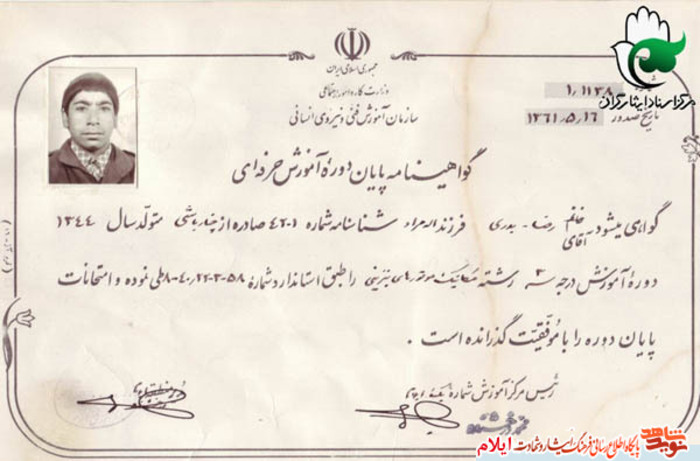 جمهوری اسلامی ایران
وزارت کار و امور اجتماعی
سازمان آموزش فنی و نیروی انسانی
مرکز اسناد ایثارگران
۱٫۱۱۳۸
تاریخ صدور ۱۳۶۱٫۵٫۱۶
گواهینامه پایان دوره آموزش حرفه‌ای
گواهی میشود خانم آقای رضا - بدری فرزند شناسنامه شماره ۴۲۰۱ صادره از متولد سال ۱۳۴۴
دوره آموزش درجه ۳ رشته مکانیک موتورهای بنزینی را طبق استاندارد شماره ۸-۴۰٫۲۲-۳-۵۸ طی نموده و امتحانات
پایان دوره را با موفقیت گذرانده است .
رئیس مرکز آموزش شماره
نوید شاهد
پایگاه اطلاع رسانی فرهنگ ایثار و شهادت ایلام